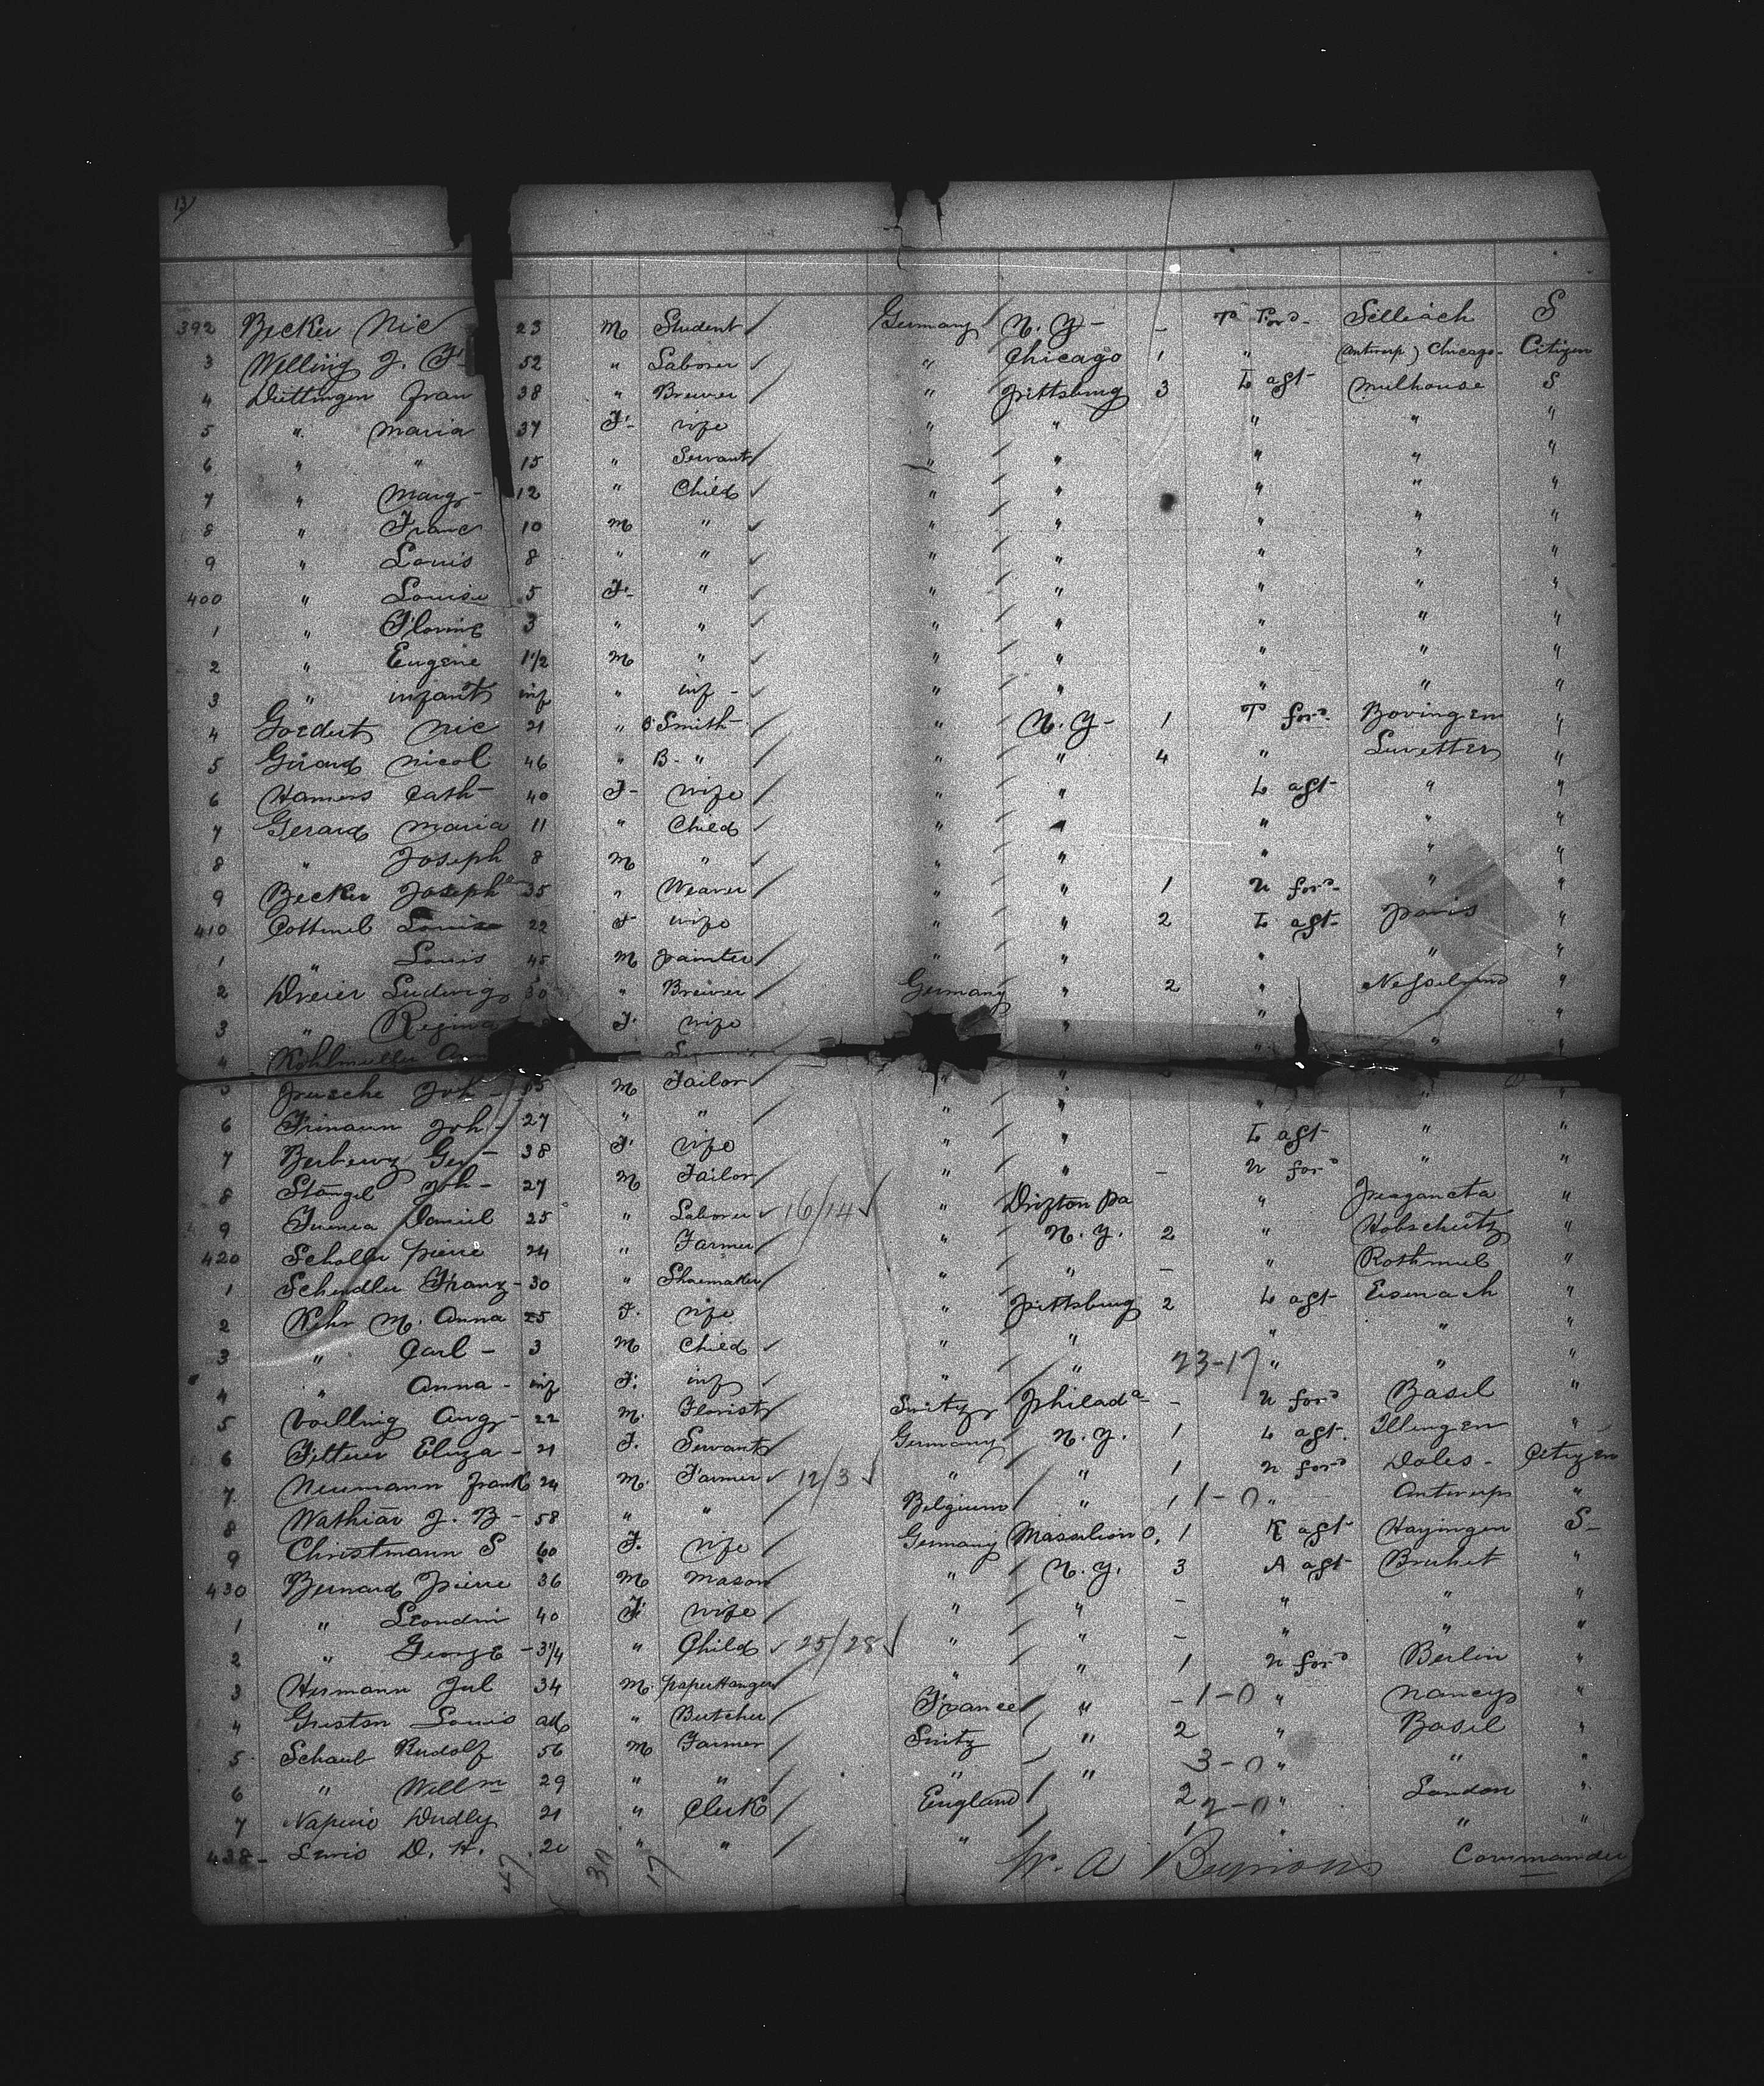 13
392 Becker Nic 23 M Student Germany N. Y - - T For^d. Selliach S
3 Welling J. F. 52 " Laborer " Chicago 1 " (Antwerp) Chicago - Citizen
4 Diettingen Fran 38 " Brewer " Pittsburg 3 L aft Mulhouse S
5 " Maria 37 F. wife " " " " "
6 " " 15 " Servant " " " " "
7 " Marg - 12 " Child " " " " "
8 " Franc 10 M " " " " " "
9 " Louis 8 " " " " " " "
400 " Louise 5 F. " " " " " "
1 " 3 " " " " " " "
2 " Eugene 1 1/2 M " " " " " "
3 " infant inf " inf - " " " " "
4 Nic 21 " Smith " N. Y - 1 T for^d. Bovingen "
5 Girard Nicol 46 " B. " " " 4 " "
6 Hamers Cath - 40 F - wife " " L aft - " "
7 Gerard Maria 11 " Child " " " " "
8 " Joseph 8 M " " " " " "
9 Becker Joseph 35 " Weaver " " 1 n for^d. " "
410 Louise 22 F wife " " 2 L aft - Paris "
1 " Louis 45 M Painter " " " " "
2 Dreier Ludwig 30 " Brewer Germany " 2 " "
3 " Regina F. wife " " "
4 Kohlmuller " "
5 Joh - M Tailor " " "
6 Frimann Joh - 27 " " " " " " "
7 Ger - 38 F. wife " " L aft - " "
8 Stangel Joh - 27 M Tailor " " - n for^d " "
9 Daniel 25 " Laborer 16/14 " Drifton Pa " "
420 Scholler Pierre 24 " Farmer " N. Y. 2 " Hobscheitz "
1 Schindler Franz - 30 " Shoemaker " " - " "
2 Kehr M. Anna 25 F. wife " Pittsburg 2 L aft Eisenach "
3 " Carl - 3 M Child " " " " "
4 " Anna - inf F. inf " " 23-17 " " "
5 Voelling Aug - 22 M. Florist Switz Philad^a - - n for^d Basel "
6 Eliza - 21 F. Servant Germany N. Y. 1 L aft. Illingen "
7 Neumann Frank 24 M. Farmer 12/3 " " 1 n for^d Dales - Citizen
8 Wathiar J. B - 58 " " Belgium " 1 1-0 " Antwerp "
9 Christmann S 60 F. wife Germany Massilion O, 1 K aft Hayingen S -
430 Bernard Pierre 36 M Mason " N. Y. 3 A aft "
1 " 40 F. wife " " - " " "
2 " George - 3 1/4 " Child 25/28 " " - " " "
3 Hermann Jul 34 M. Paperhanger " " 1 n for^d Berlin "
4 Louis ad " Butcher France " - 1-0 " Nancy "
5 Schaub Rudolf 56 M Farmer Switz " 2 " Basel "
6 " Will^m 29 " " " " 3-0 " " "
7 Dudly 21 " Clerk England 2 2-0 " London "
438 - Lewis D. H. 20 " " " " "
47 30 17 W. A Commander